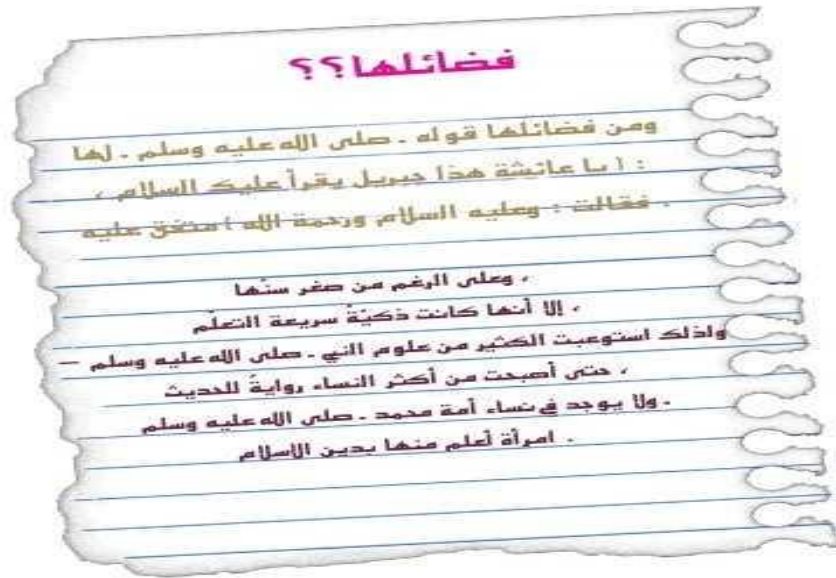 فضائلها؟؟
ومن فضائلها قوله - صلى الله عليه وسلم - لها
: ( يا عائشة هذا جبريل يقرأ عليك السلام ،
. فقالت : وعليه السلام ورحمة الله ) متفق عليه
، وعلى الرغم من صغر سنّها
، إلا أنها كانت ذكيّةً سريعة التعلّم
ولذلك استوعبت الكثير من علوم النبي - صلى الله عليه وسلم –
، حتى أصبحت من أكثر النساء روايةً للحديث
- ولا يوجد في نساء أمة محمد - صلى الله عليه وسلم
. امرأة أعلم منها بدين الإسلام